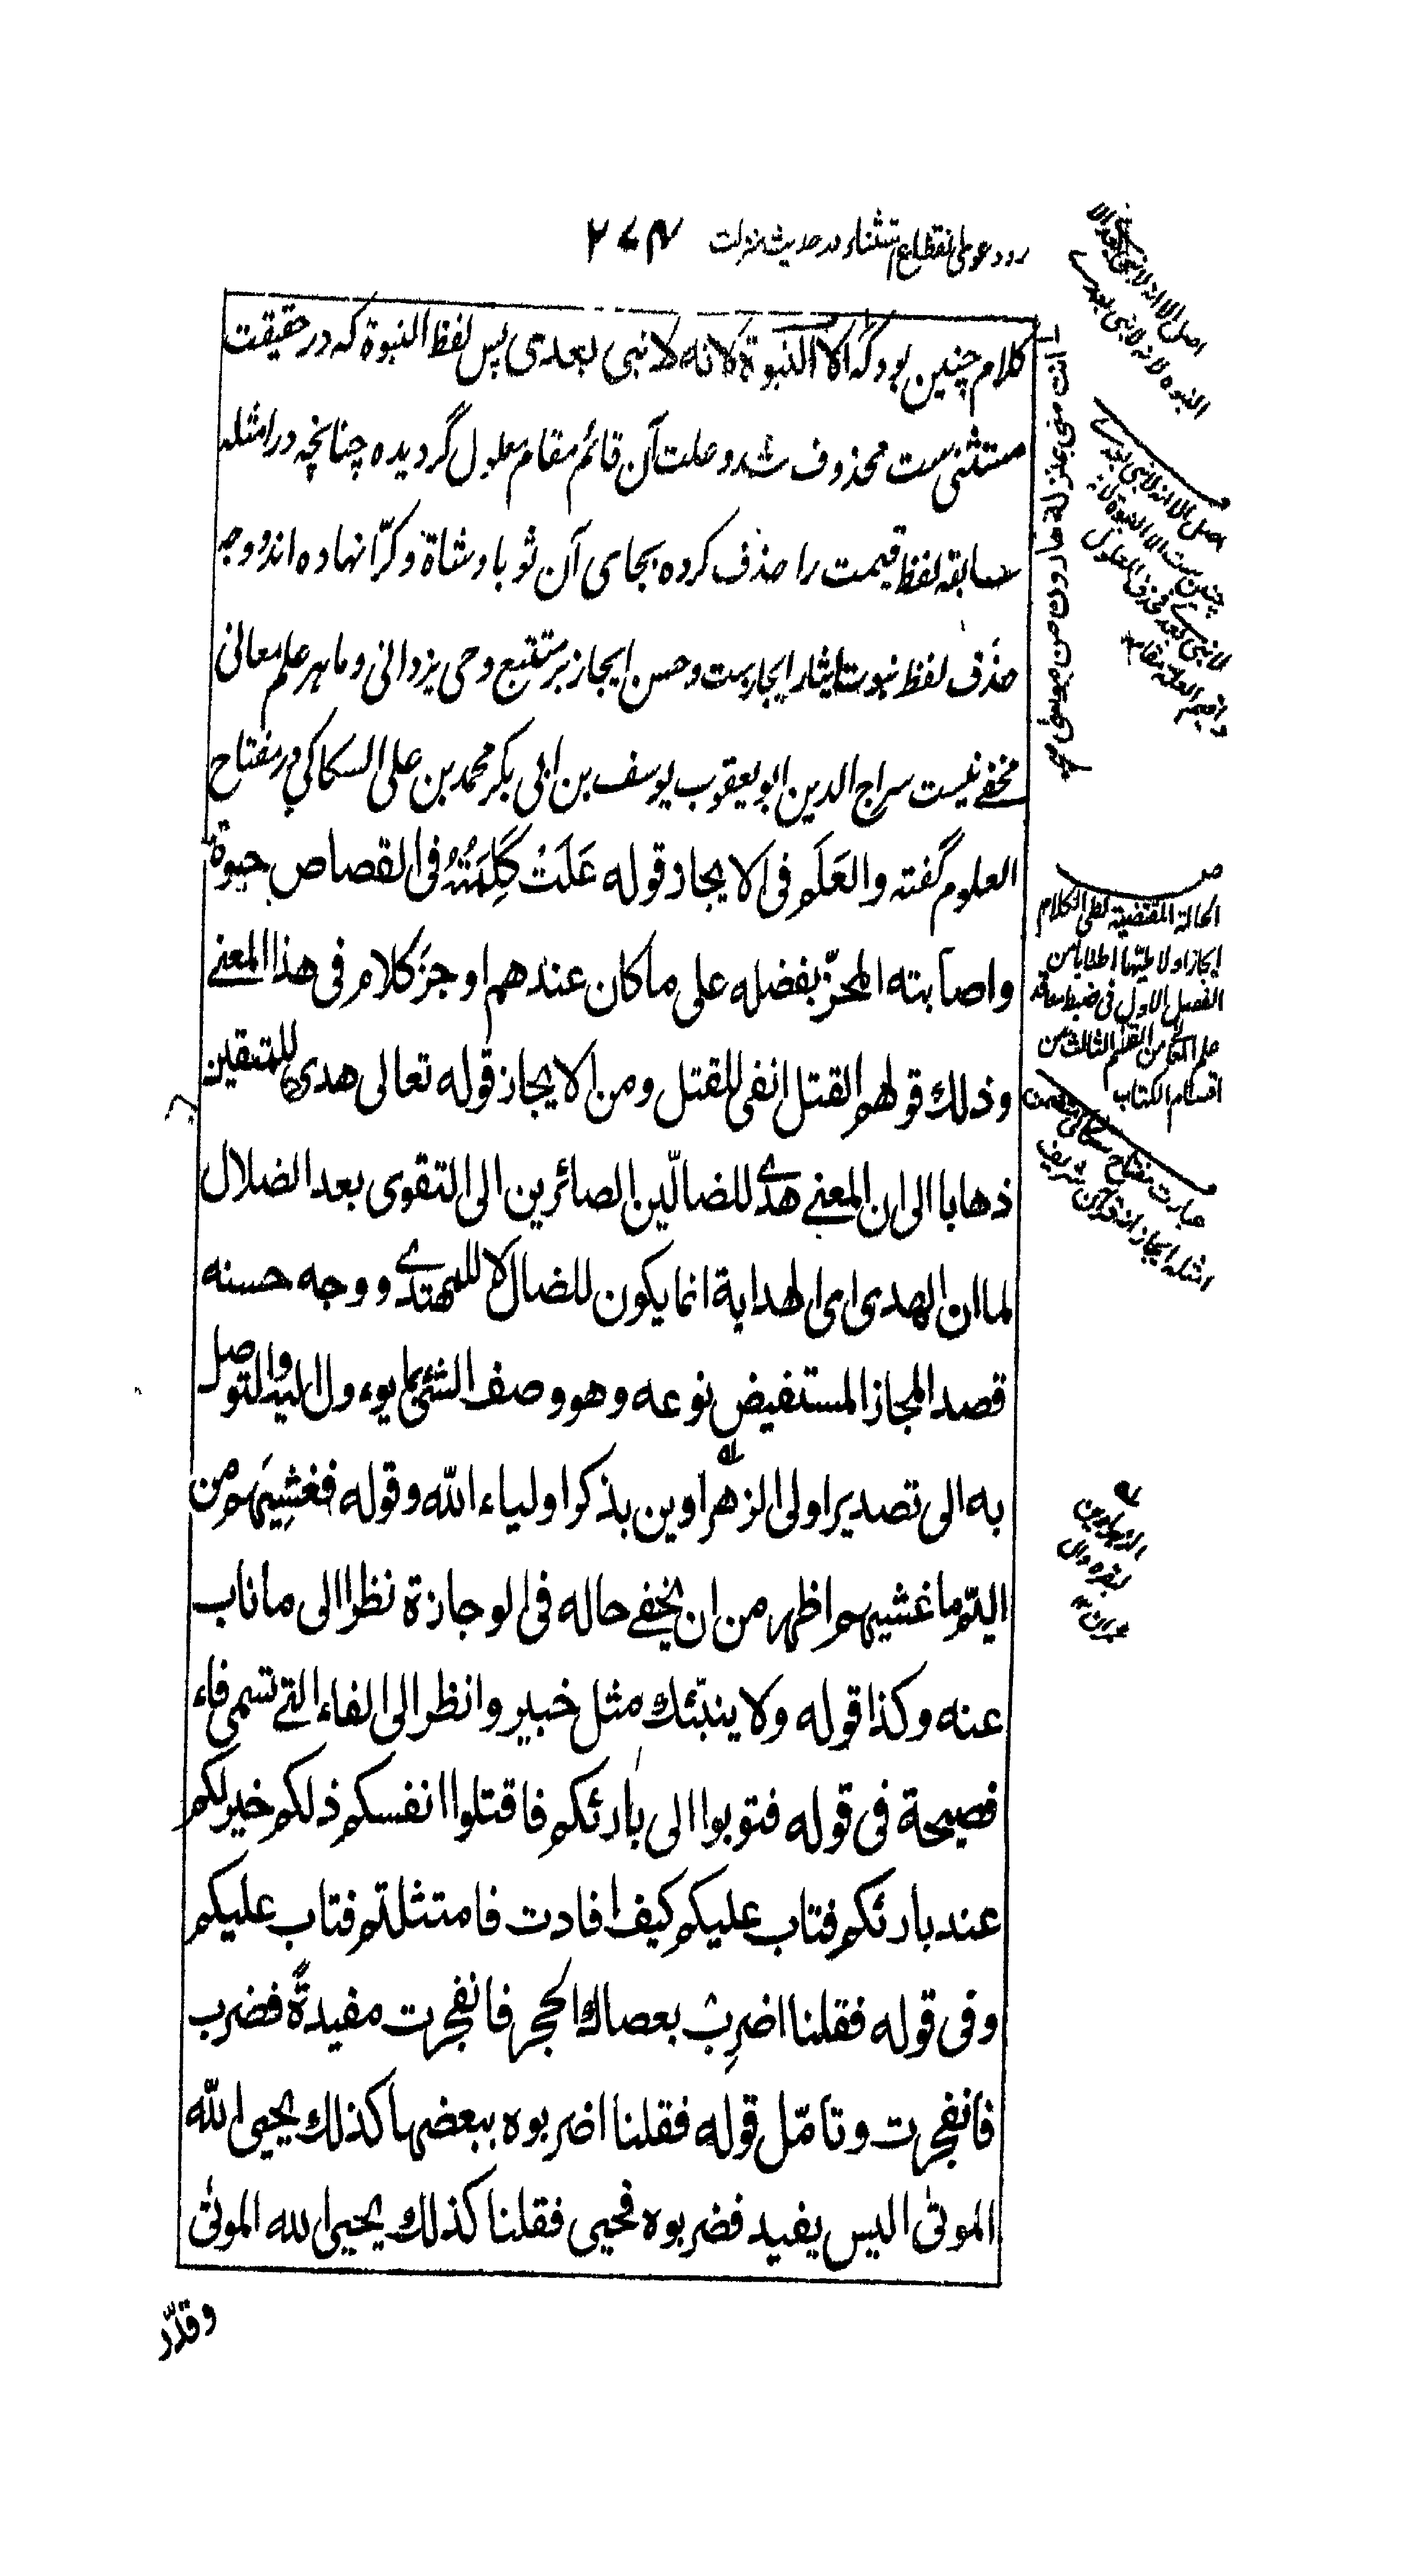 رد دعوی انقطاع استثناء در حدیث منزلت ۲۷۴
کلام چنین بود که الا النبوة لانه لا نبی بعدی پس لفظ النبوة که در حقیقت
مستثنی ست محذوف شد و علت آن قائم مقام معلول گردیده چنانچه در امثله
سابقه لفظ قیمت را حذف کرده بجای آن ثوبا و شاة و کرّا نهاده اند و وجه
حذف لفظ نبوت ایثار ایجاز ست و حسن ایجاز بر متتبع وحی یزدانی و ماهر علم معانی
مخفے نیست سراج الدین ابو یعقوب یوسف بن ابی بکر محمد بن علی السکاکی در مفتاح
العلوم گفته والعَلَم فی الایجاز قوله عَلَتْ كَلِمَتُهُ فی القصاص حیوة
واصابته المحزّ بفضله علی ما کان عندهم اوجز کلام فی هذا المعنے
وذلك قولهم القتل انفی للقتل ومن الایجاز قوله تعالی هدی للمتقین
ذهابا الی ان المعنے هدی للضالّین الصائرین الی التقوی بعد الضلال
لما ان الهدی ای الهدایة انما یکون للضال لا للمهتدے ووجه حسنه
قصد المجاز المستفیض نوعه وهو وصف الشئ بما یوءول الیه والتوصل
به الی تصدیر اولی الزهراوین بذکر اولیاء الله وقوله فغشِیَهم من
الیَمّ ما غشیهم اظهر من ان یخفے حاله فی الوجازة نظرا الی ما ناب
عنه وکذا قوله ولا ینبّئك مثل خبیر وانظر الی الفاء التے تسمی فاء
فصیحة فی قوله فتوبوا الی بارئکم فاقتلوا انفسکم ذلکم خیر لکم
عند بارئکم فتاب علیکم کیف افادت فامتثلتم فتاب علیکم
وفی قوله فقلنا اضرِب بعصاك الحجر فانفجرت مفیدةً فضرب
فانفجرت وتامّل قوله فقلنا اضربوه ببعضها کذلك یحیی الله
الموتی الیس یفید فضربوه فحیی فقلنا کذلك یحیی الله الموتی
وقدّر
اصل الا انه لا نبی بعدی الا
النبوه لانه لا نبی بعدے
اصل الا انه لا نبی بعدے
چنین ست الا النبوة لانه
لا نبی بعدے فحذف المعلول
و اقیم العلة مقامه
الحالة المقتضیة لطی الکلام
ایجازا ولا طیّها اطنابا من
الفصل الاول فی ضبط معاقد
علم المعانی من القسم الثالث من
اقسام الکتاب
عبارت مفتاح سکاکی متضمن
امثله ایجاز از قرآن شریف
الزهراوین
بقره وآل
عمران